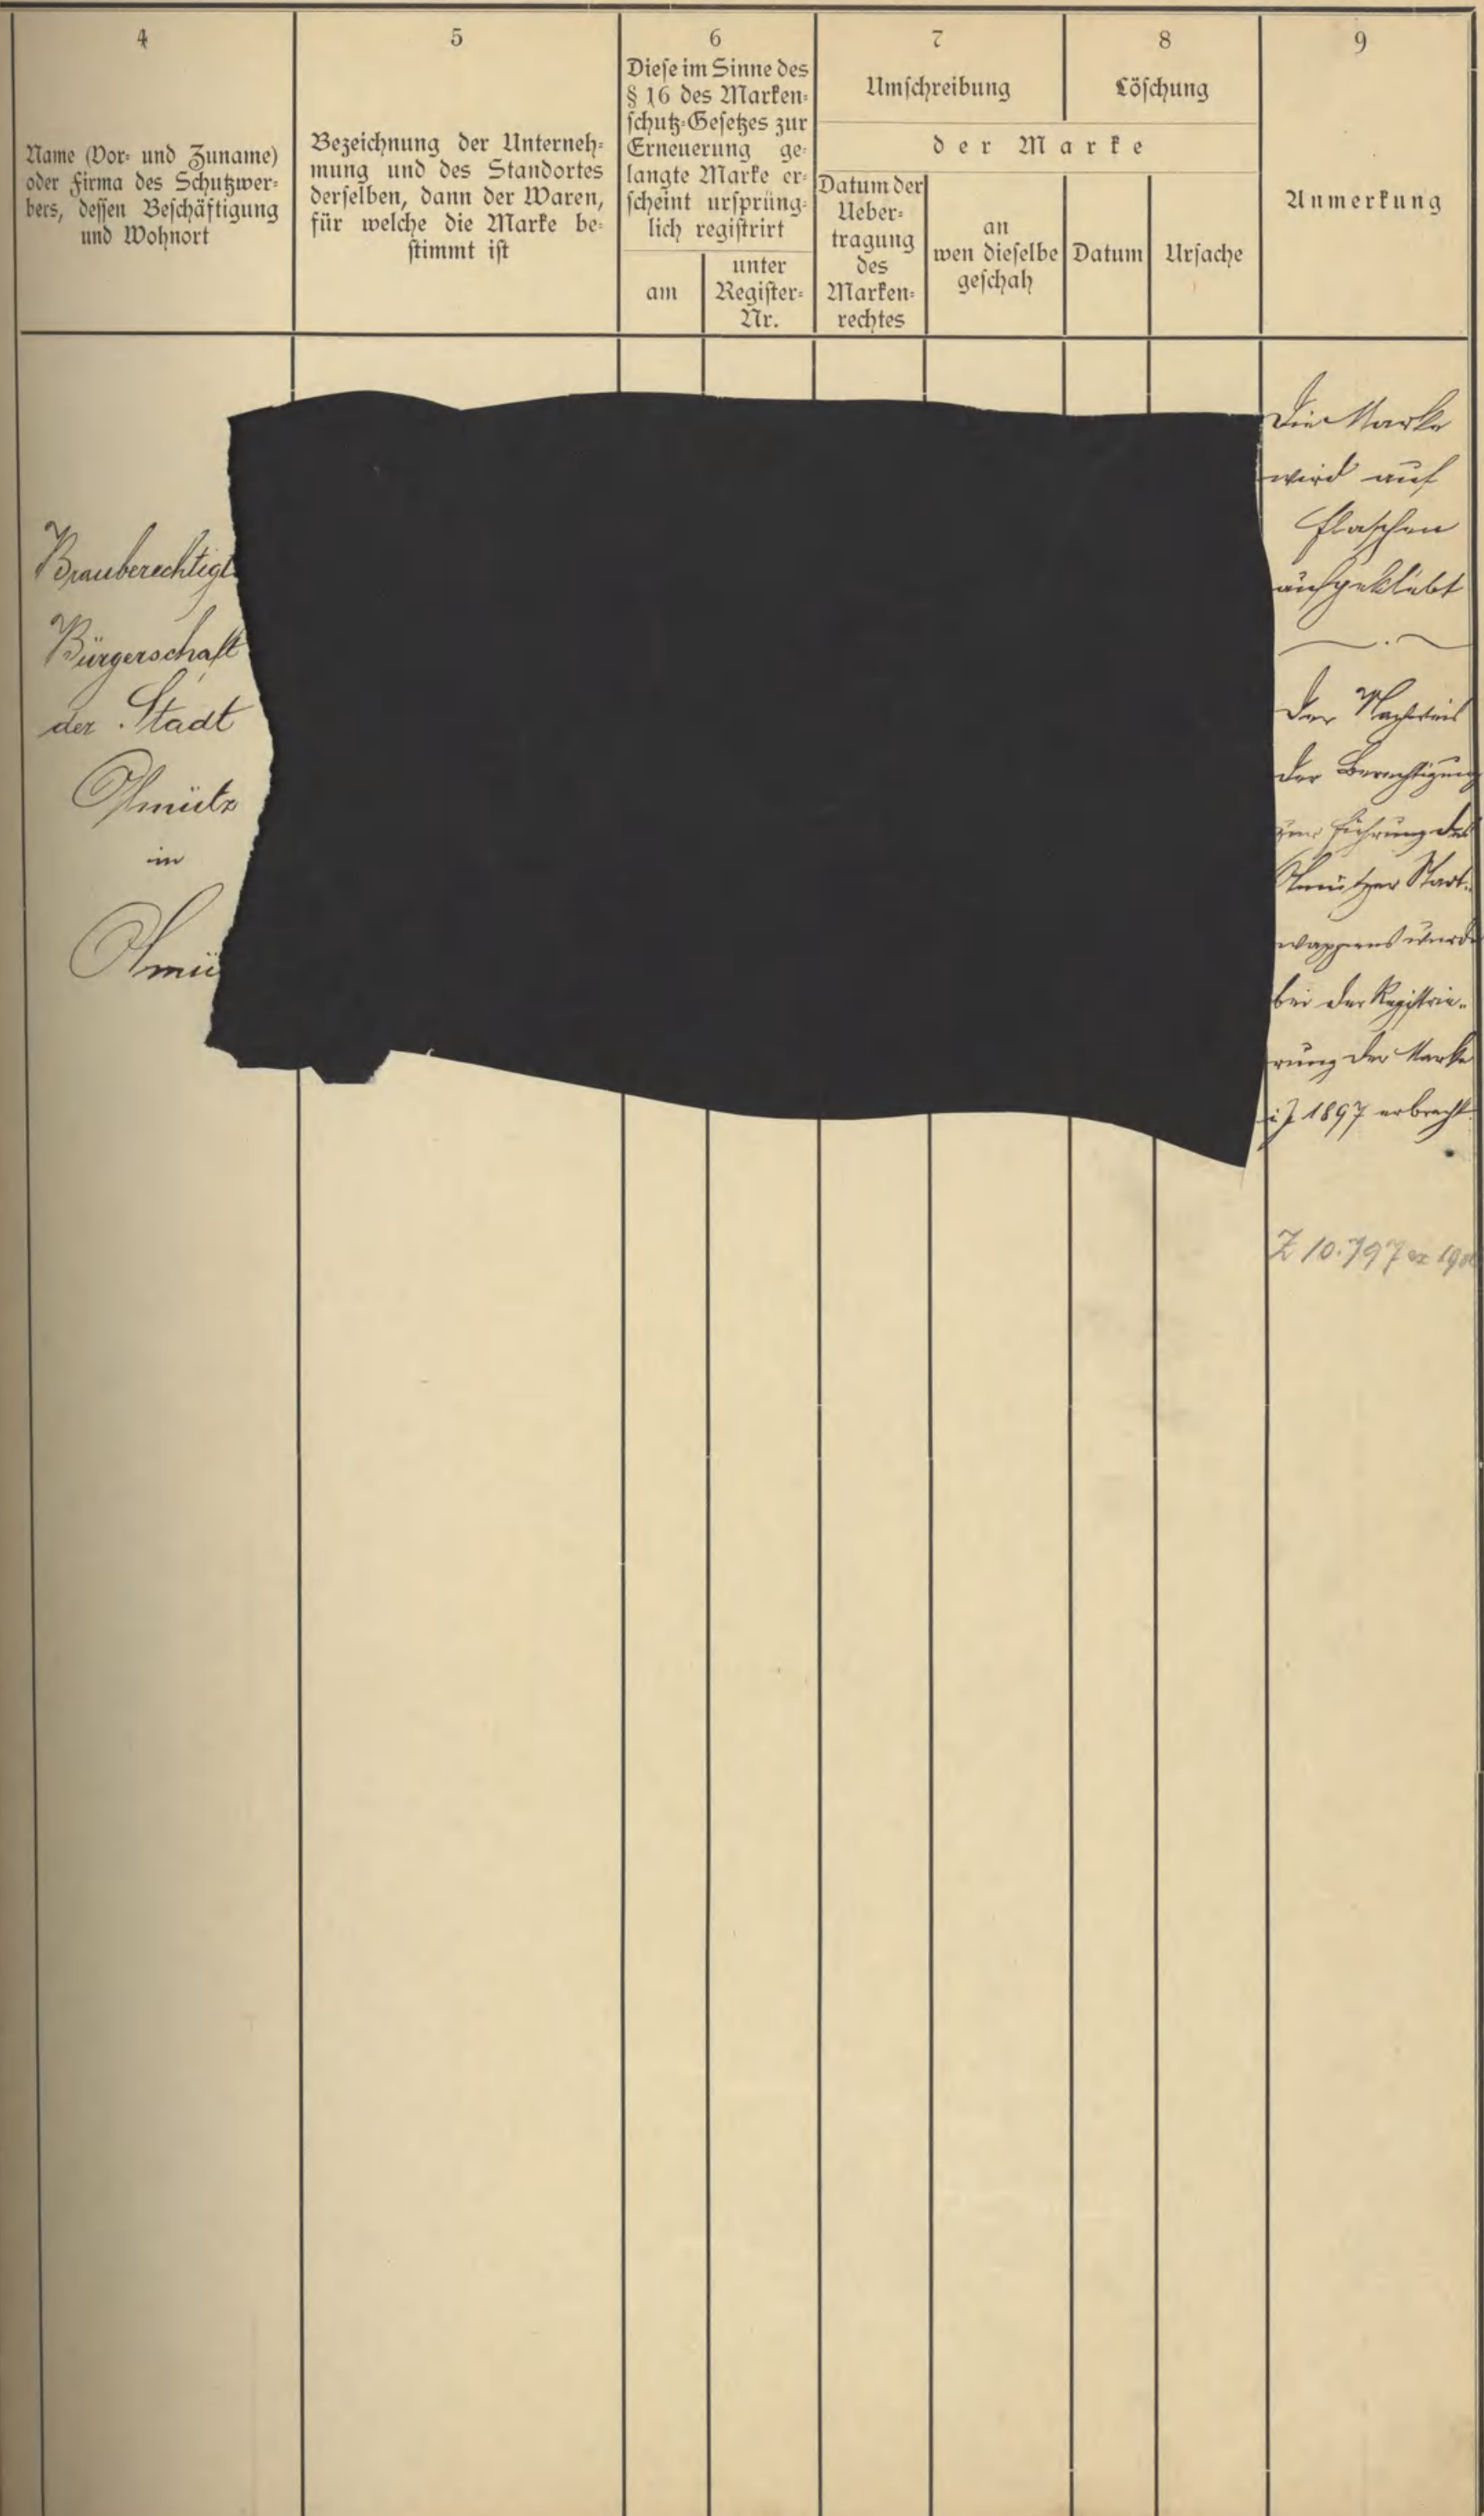 4
Name (Vor- und Zuname)
oder Firma des Schutzwer-
bers, dessen Beschäftigung
und Wohnort
5
Bezeichnung der Unterneh-
mung und des Standortes
derselben, dann der Waren,
für welche die Marke be-
stimmt ist
6
Diese im Sinne des
§ 16 des Marken-
schutz-Gesetzes zur
Erneuerung ge-
langte Marke er-
scheint ursprüng-
lich registrirt
am
unter
Register-
Nr.
7
Umschreibung
8
Löschung
der Marke
Datum der
Ueber-
tragung
des
Marken-
rechtes
an
wen dieselbe
geschah
Datum
Ursache
9
Anmerkung
Brauberechtigt
Bürgerschaft
der Stadt
Olmütz
in
Olmü
Die Marke
wird auf
Flaschen
aufgeklebt
Der Nachweis
der Berechtigung
zur Führung des
Olmützer Stadt-
wappens wurde
bei der Registrie-
rung der Marke
i J 1897 erbracht.
Z 10.797 ex